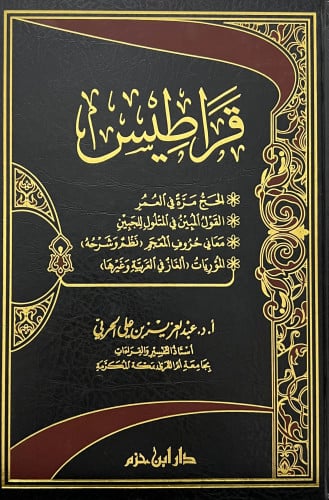 قراطيس
الحج مرة في العمر
القول المبين في المتلول للجبين
معاني حروف المعجم (نظم وشرحه)
المؤربات (ألغاز في العربية وغيرها)
أ. د. عبد العزيز بن علي الحربي
أستاذ التفسير والقراءات
بجامعة أم القرى بمكة المكرمة
دار ابن حزم